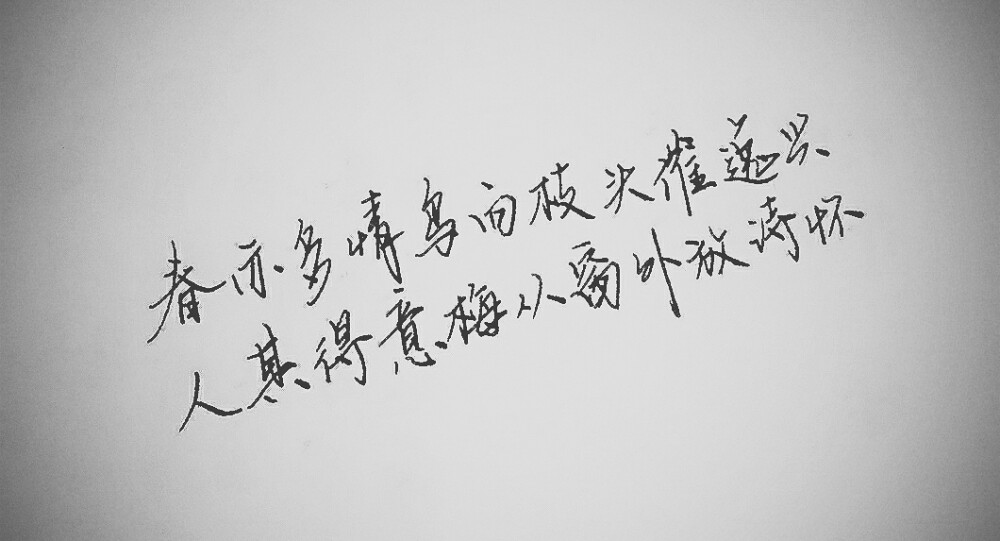 春亦多情鸟向枝头催逸兴
人其得意梅从窗外放诗怀